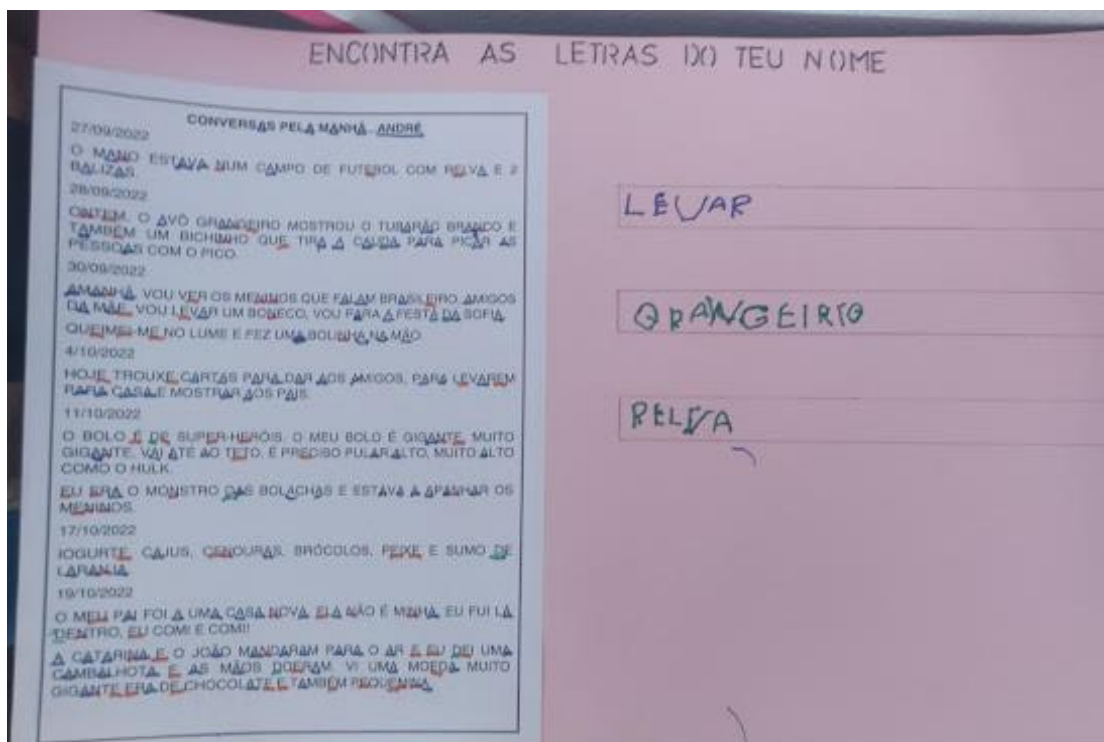 ENCONTRA AS LETRAS DO TEU NOME
CONVERSAS PELA MANHÃ ANDRÉ
27/09/2022
O MANO ESTAVA NUM CAMPO DE FUTEBOL COM RELVA E 2
BALIZAS.
28/09/2022
ONTEM, O AVÔ GRANGEIRO MOSTROU O TUBARÃO BRANCO E
TAMBÉM UM BICHINHO QUE TIRA A CAUDA PARA PICAR AS
PESSOAS COM O PICO.
30/09/2022
AMANHÃ, VOU VER OS MENINOS QUE FALAM BRASILEIRO, AMIGOS
DA MÃE, VOU LEVAR UM BONECO, VOU PARA A FESTA DA SOFIA.
QUEIMEI-ME NO LUME E FEZ UMA BOLINHA NA MÃO
4/10/2022
HOJE TROUXE CARTAS PARA DAR AOS AMIGOS, PARA LEVAREM
PARA CASA E MOSTRAR AOS PAIS.
11/10/2022
O BOLO É DE SUPER-HERÓIS. O MEU BOLO É GIGANTE, MUITO
GIGANTE, VAI ATÉ AO TETO, É PRECISO PULAR ALTO, MUITO ALTO
COMO O HULK.
EU ERA O MONSTRO DAS BOLACHAS E ESTAVA A APANHAR OS
MENINOS.
17/10/2022
IOGURTE, CAJUS, CENOURAS, BRÓCOLOS, PEIXE E SUMO DE
LARANJA
19/10/2022
O MEU PAI FOI A UMA CASA NOVA, ELA NÃO É MINHA, EU FUI LÁ
DENTRO, EU COMI E COMI!
A CATARINA E O JOÃO MANDARAM PARA O AR E EU DEI UMA
CAMBALHOTA E AS MÃOS DOERAM. VI UMA MOEDA MUITO
GIGANTE ERA DE CHOCOLATE E TAMBÉM PEQUENINA
LEVAR
GRANGEIRO
RELVA